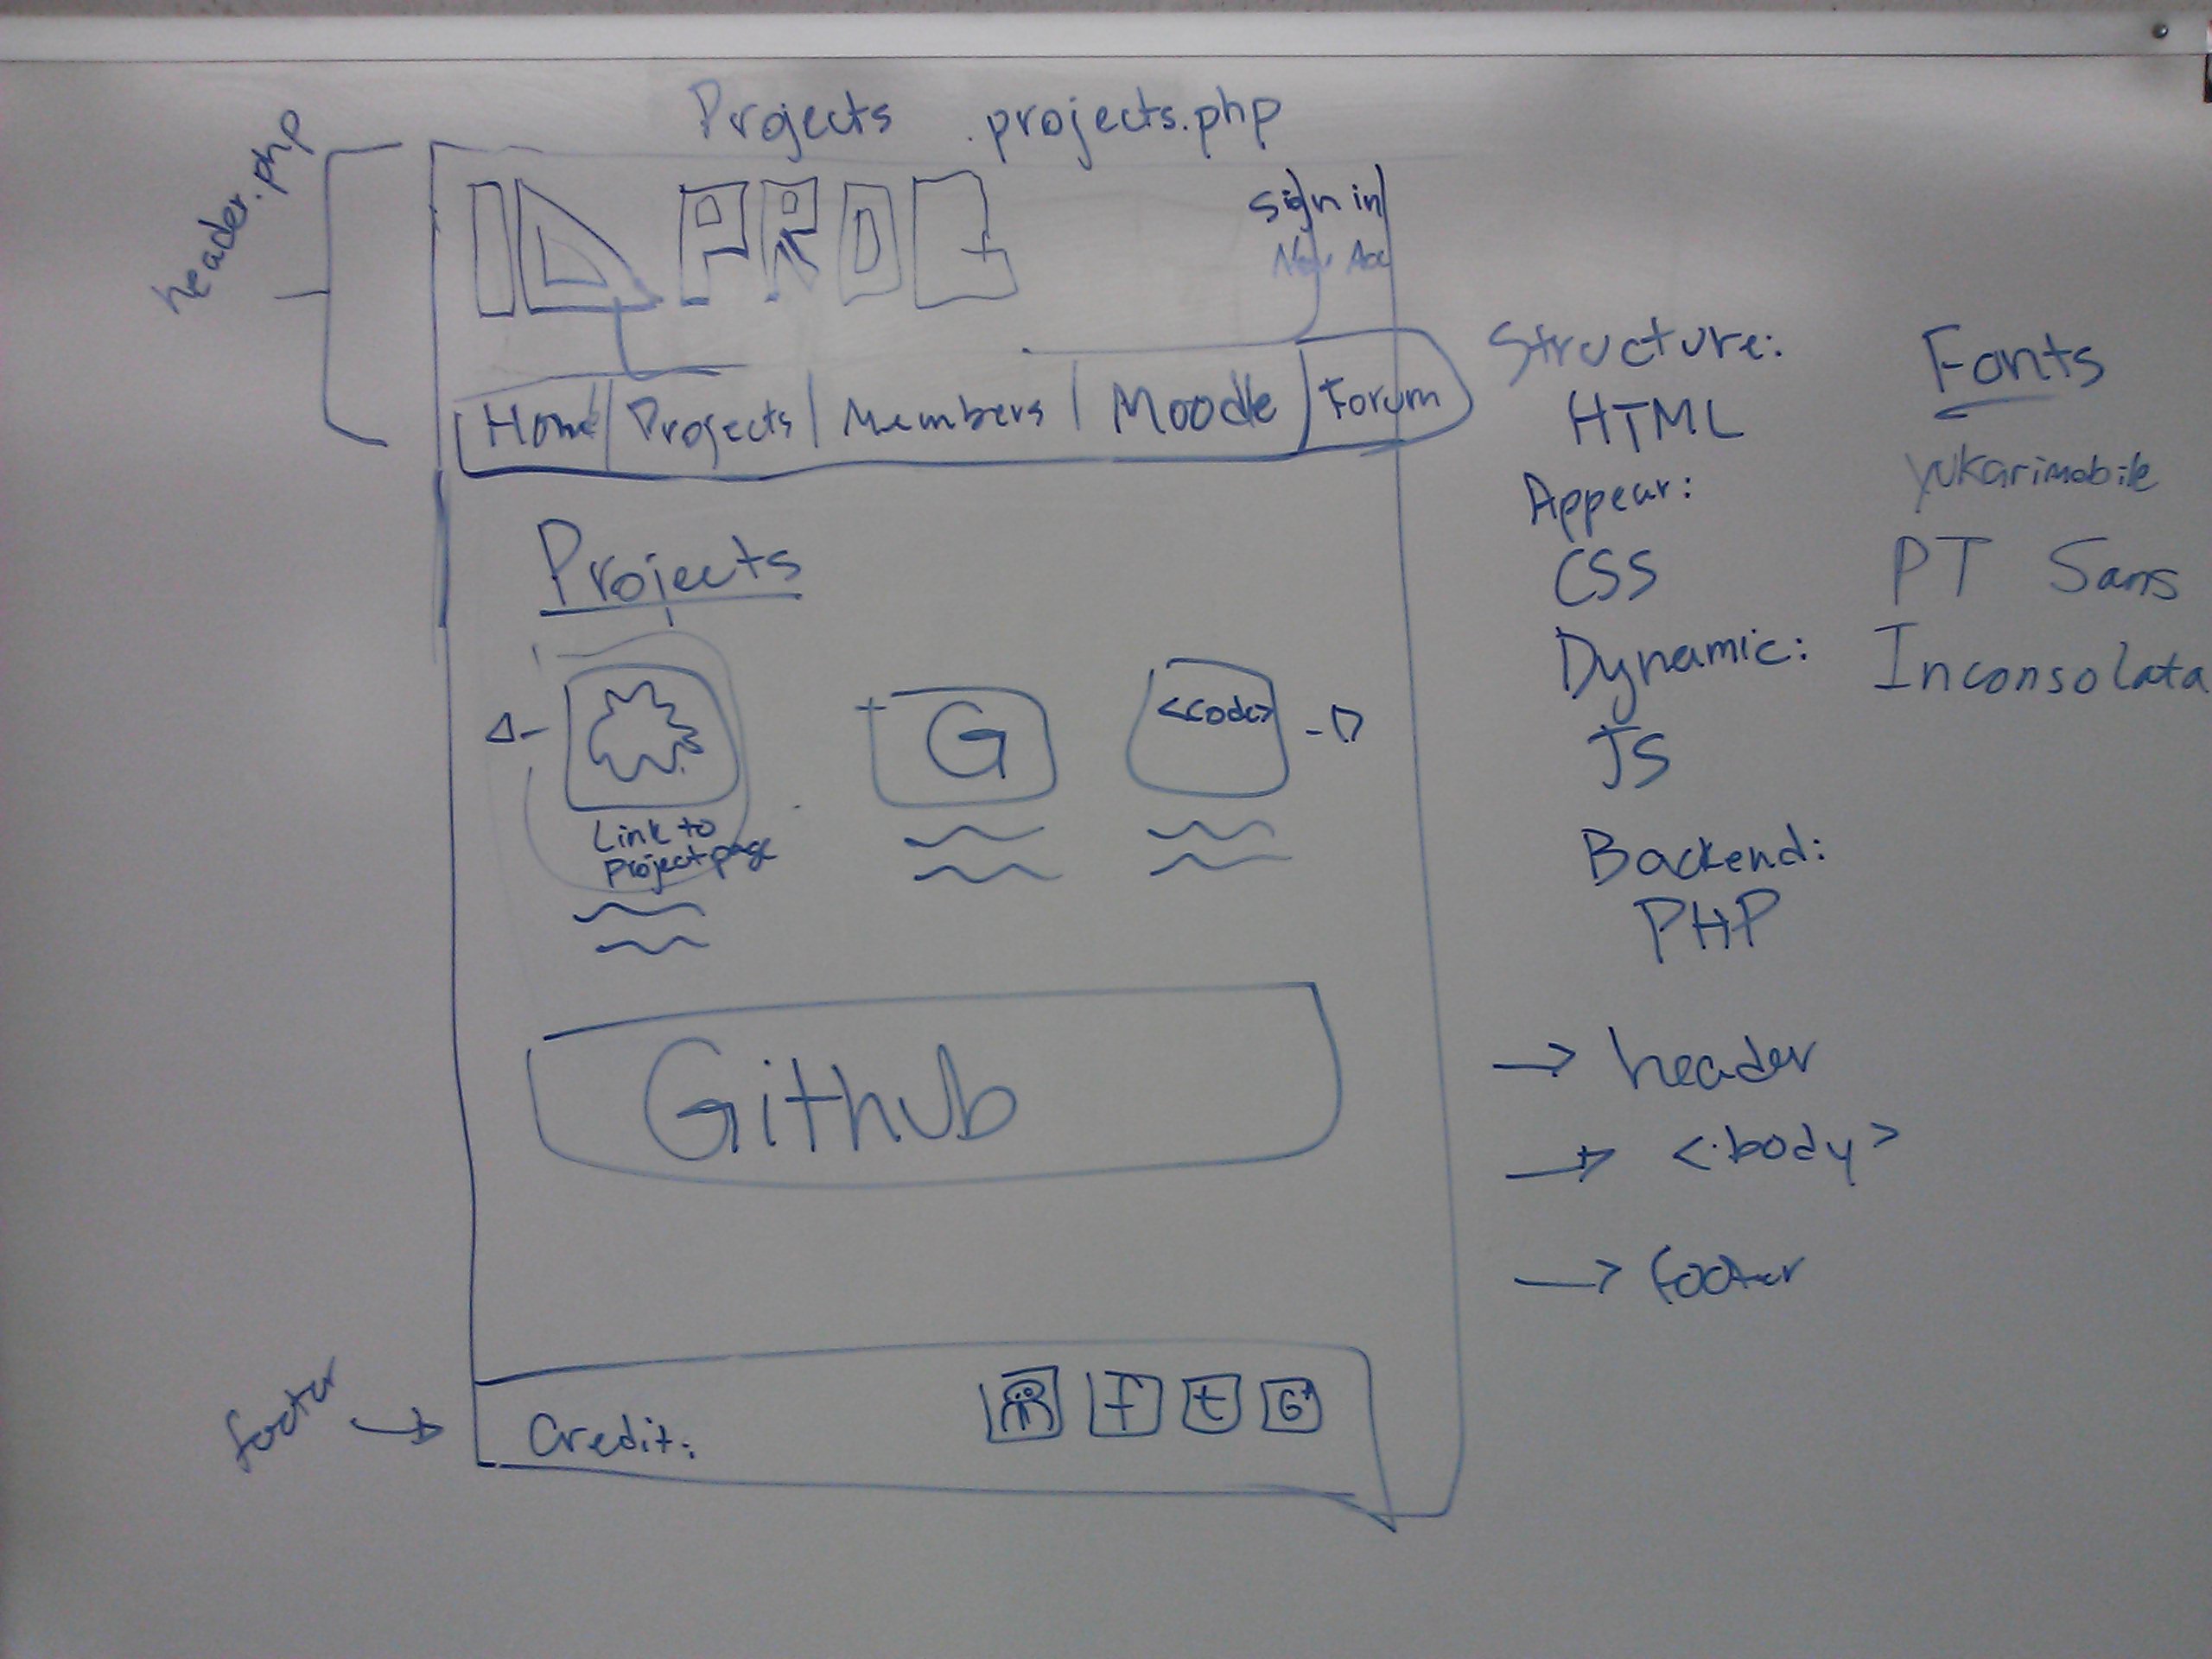 Projects .projects.php
header.php
sign in
New Acc
Home Projects Members Moodle Forum
Projects
G
<code>
Link to
Project page
Github
footer
Credit:
f t G
Structure:
HTML
Appear:
CSS
Dynamic:
JS
Backend:
PHP
Fonts
yukarimobile
PT Sans
Inconsolata
→ header
→ <body>
→ footer